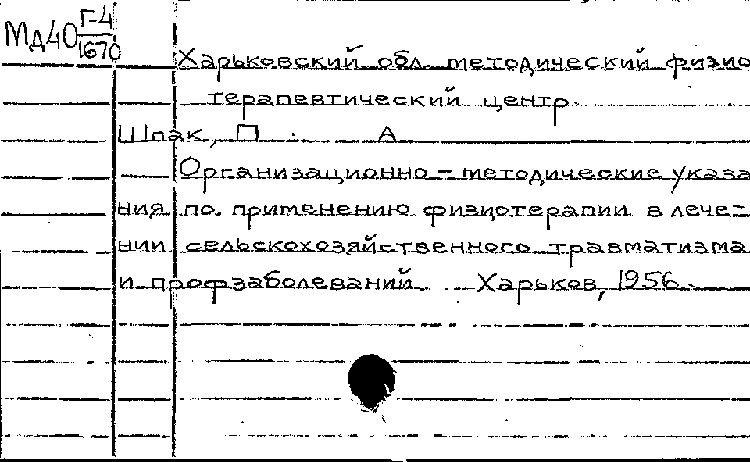 Мд40 Г-4
1670
Харьковский обл. методический физио
терапевтический центр.
Шпак, П. А
Организационно-методические указа
ния по применению физиотерапии в лече-
нии сельскохозяйственного травматизма
и профзаболеваний. Харьков, 1956.